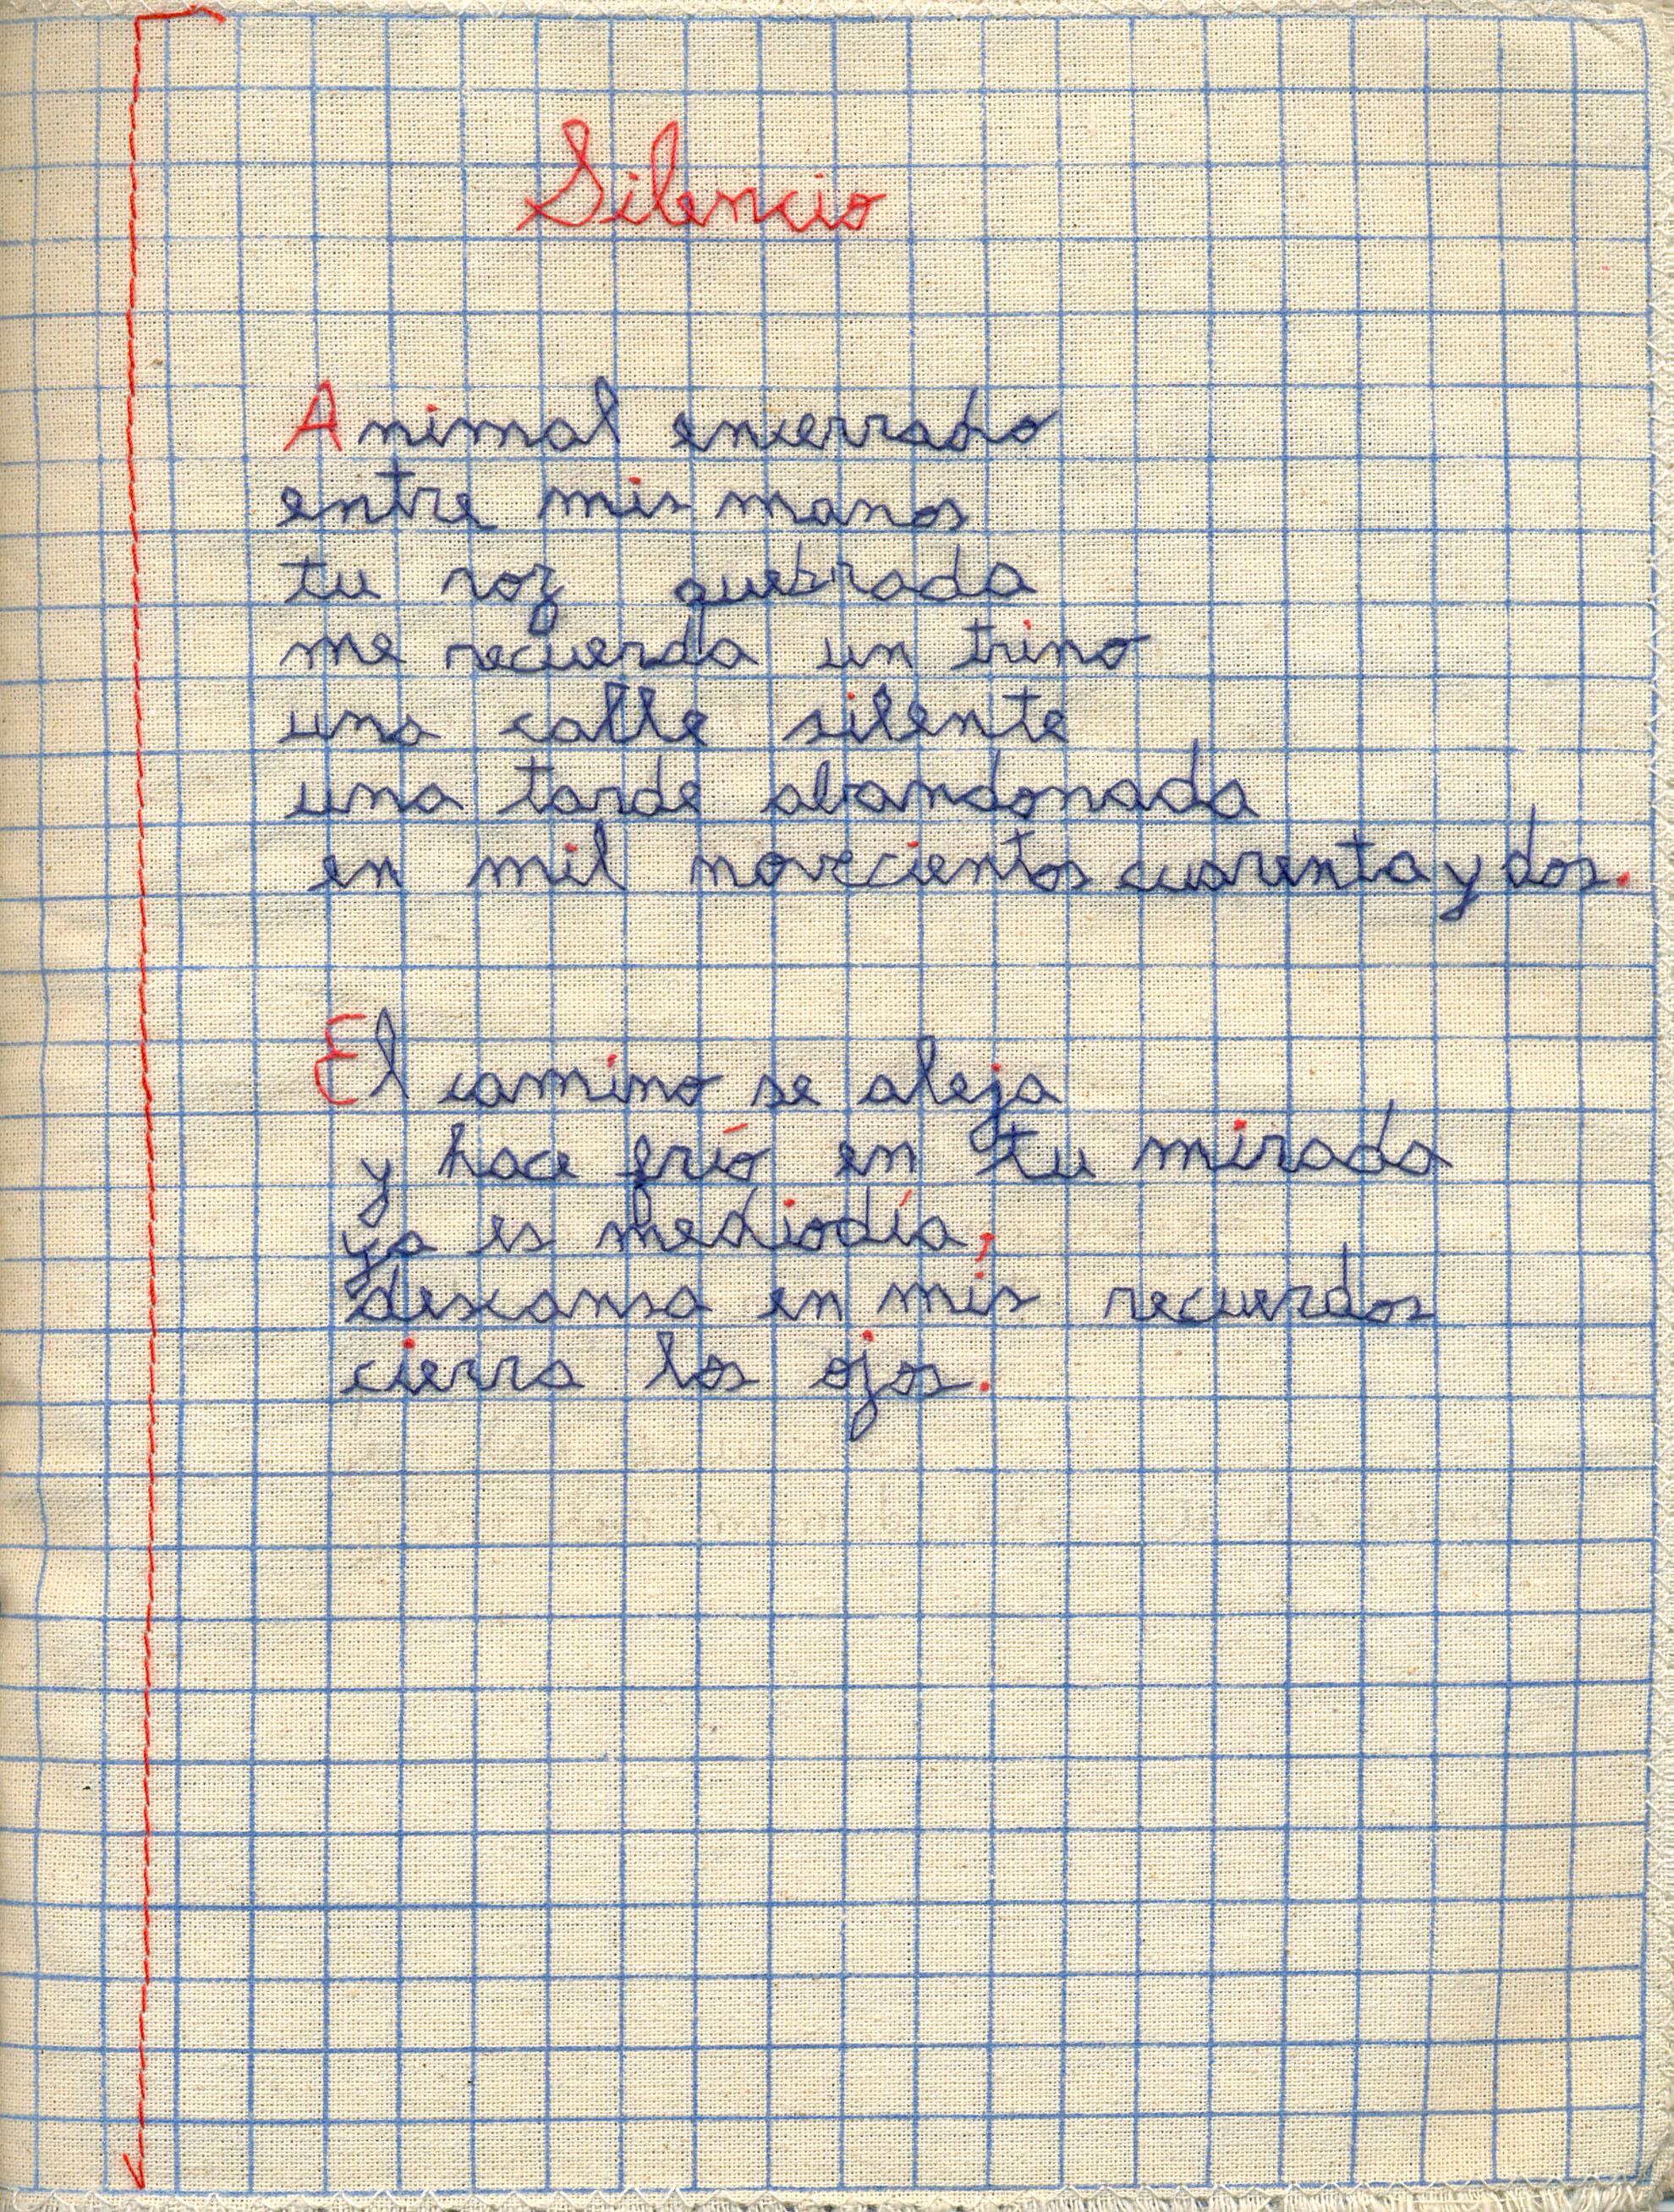 Silencio
Animal encerrado
entre mis manos
tu voz quebrada
me recuerda un trino
una calle silente
una tarde abandonada
en mil novecientos cuarenta y dos.
El camino se aleja
y hace frío en tu mirada
ya es mediodía,
descansa en mis recuerdos
cierra los ojos.